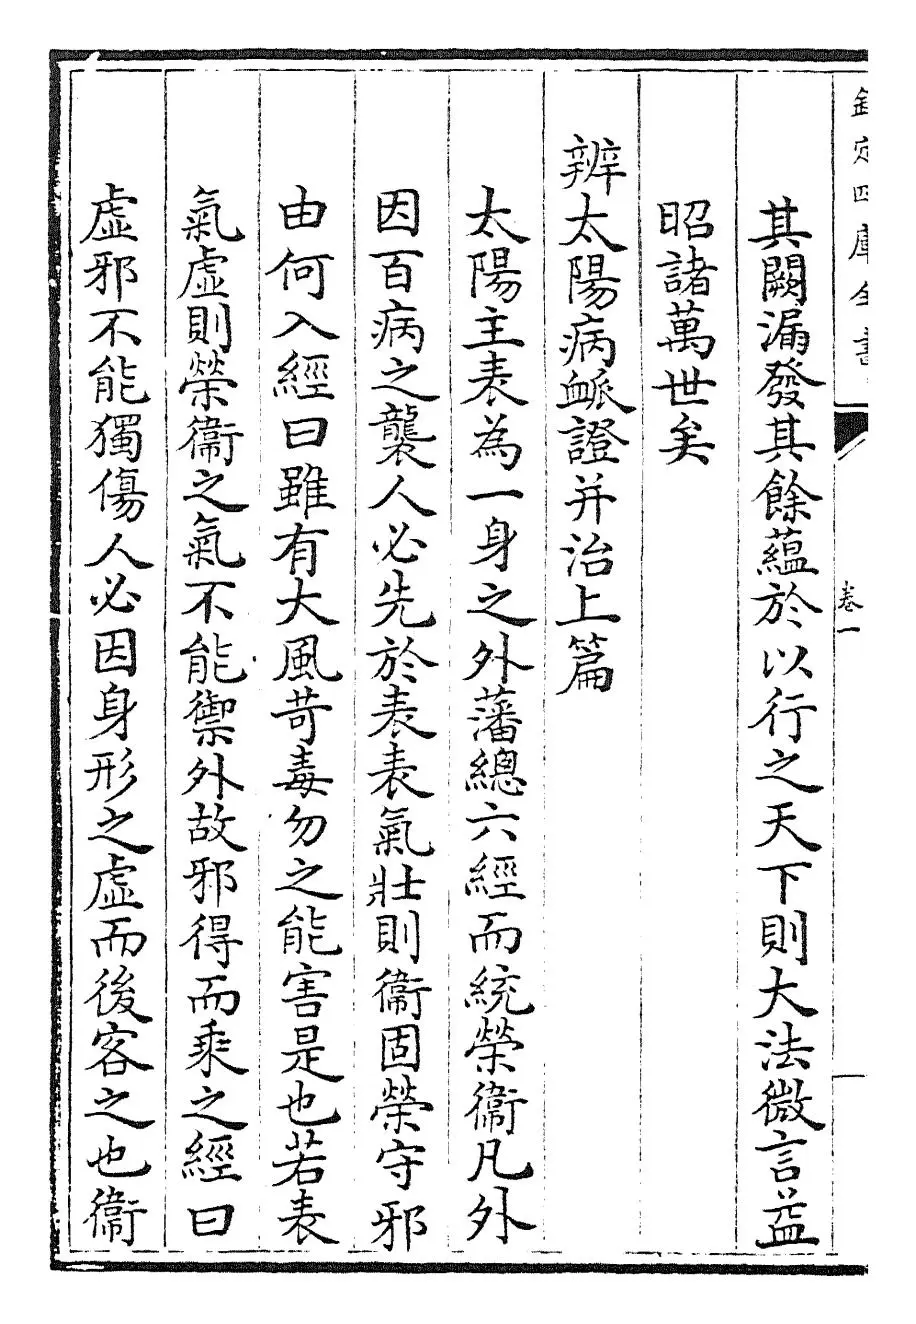 欽定四庫全書
卷一
其闕漏發其餘蘊於以行之天下則大法微言益
昭諸萬世矣
辨太陽病脈證并治上篇
太陽主表為一身之外藩總六經而統榮衞凡外
因百病之襲人必先於表表氣壯則衞固榮守邪
由何入經曰雖有大風苛毒勿之能害是也若表
氣虛則榮衞之氣不能禦外故邪得而乘之經曰
虛邪不能獨傷人必因身形之虛而後客之也衞